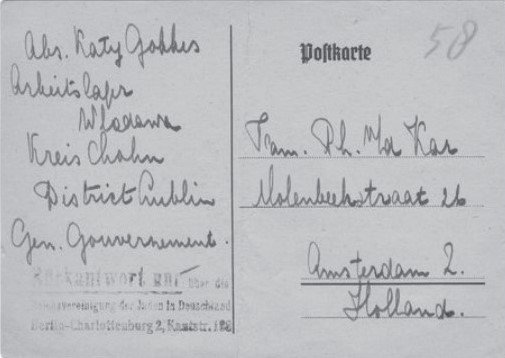 Abs. Katy Gokkes
Arbeitslager
Wlodawa
Kreis Cholm
District Lublin
Gen. Gouvernement.
Rückantwort nur über die
Reichsvereinigung der Juden in Deutschland
Berlin-Charlottenburg 2, Kantstr. 158
Postkarte
58
Fam. Ph. v/d Kar
Molenbeekstraat 26
Amsterdam 2.
Holland.